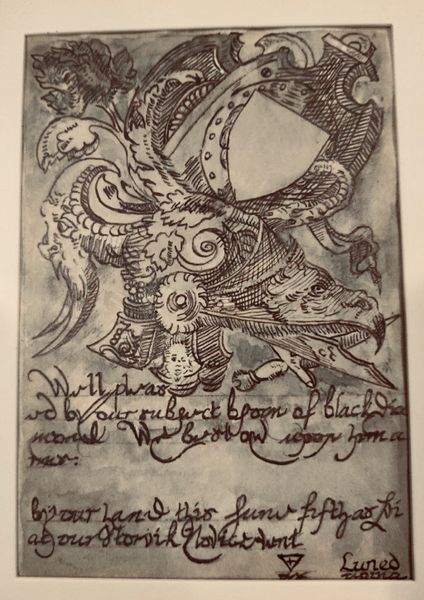 Well pleas
ed by our subject bjorn of black dia
mond We bestow upon him a
rms:
by our hand this June fifth as Li
at our Storvik Novice tent
Luned